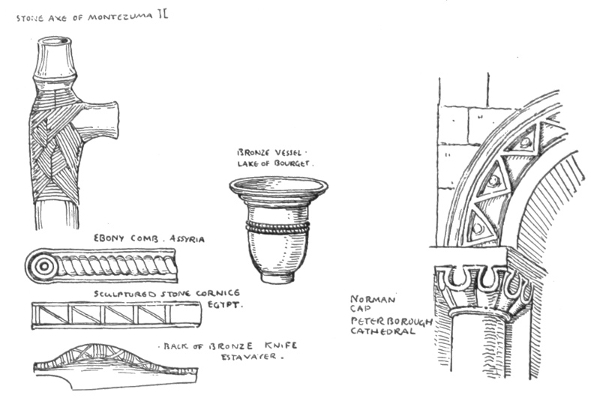 STONE AXE OF MONTEZUMA II
BRONZE VESSEL -
LAKE OF BOURGET.
EBONY COMB. ASSYRIA
SCULPTURED STONE CORNICE
EGYPT.
- BACK OF BRONZE KNIFE
ESTAVAYER.
NORMAN
CAP
PETERBOROUGH
CATHEDRAL